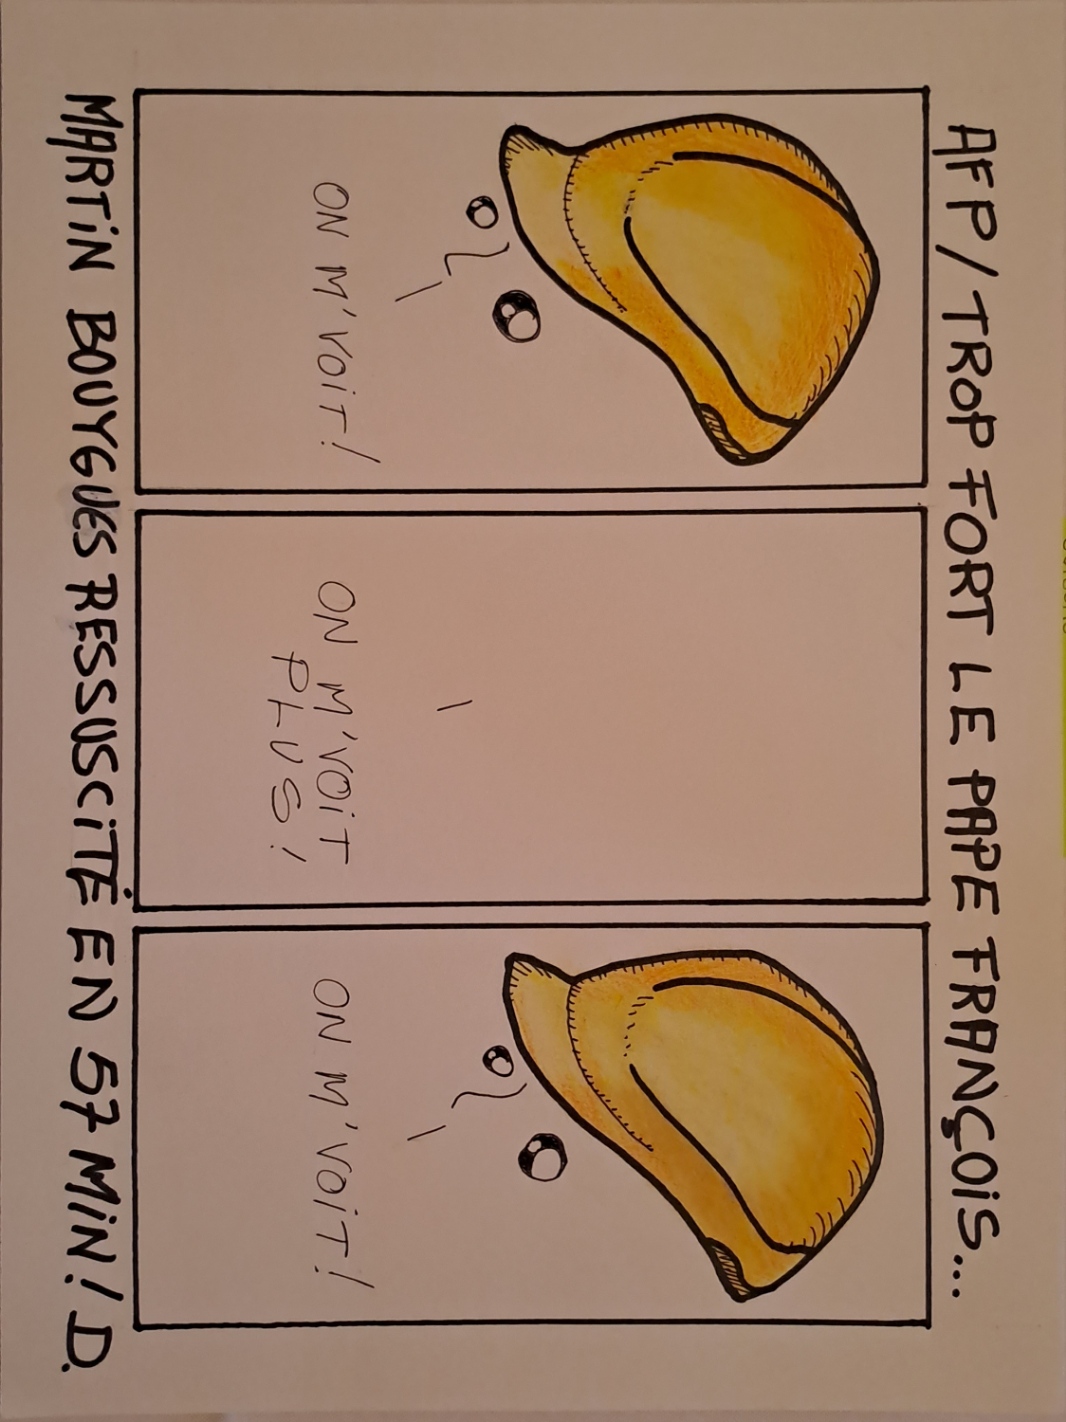 AFP/TROP FORT LE PAPE FRANÇOIS...
ON M'VOIT!
ON M'VOIT
PLUS!
ON M'VOIT!
MARTIN BOUYGUES RESSUSCITÉ EN 57 MIN! D.